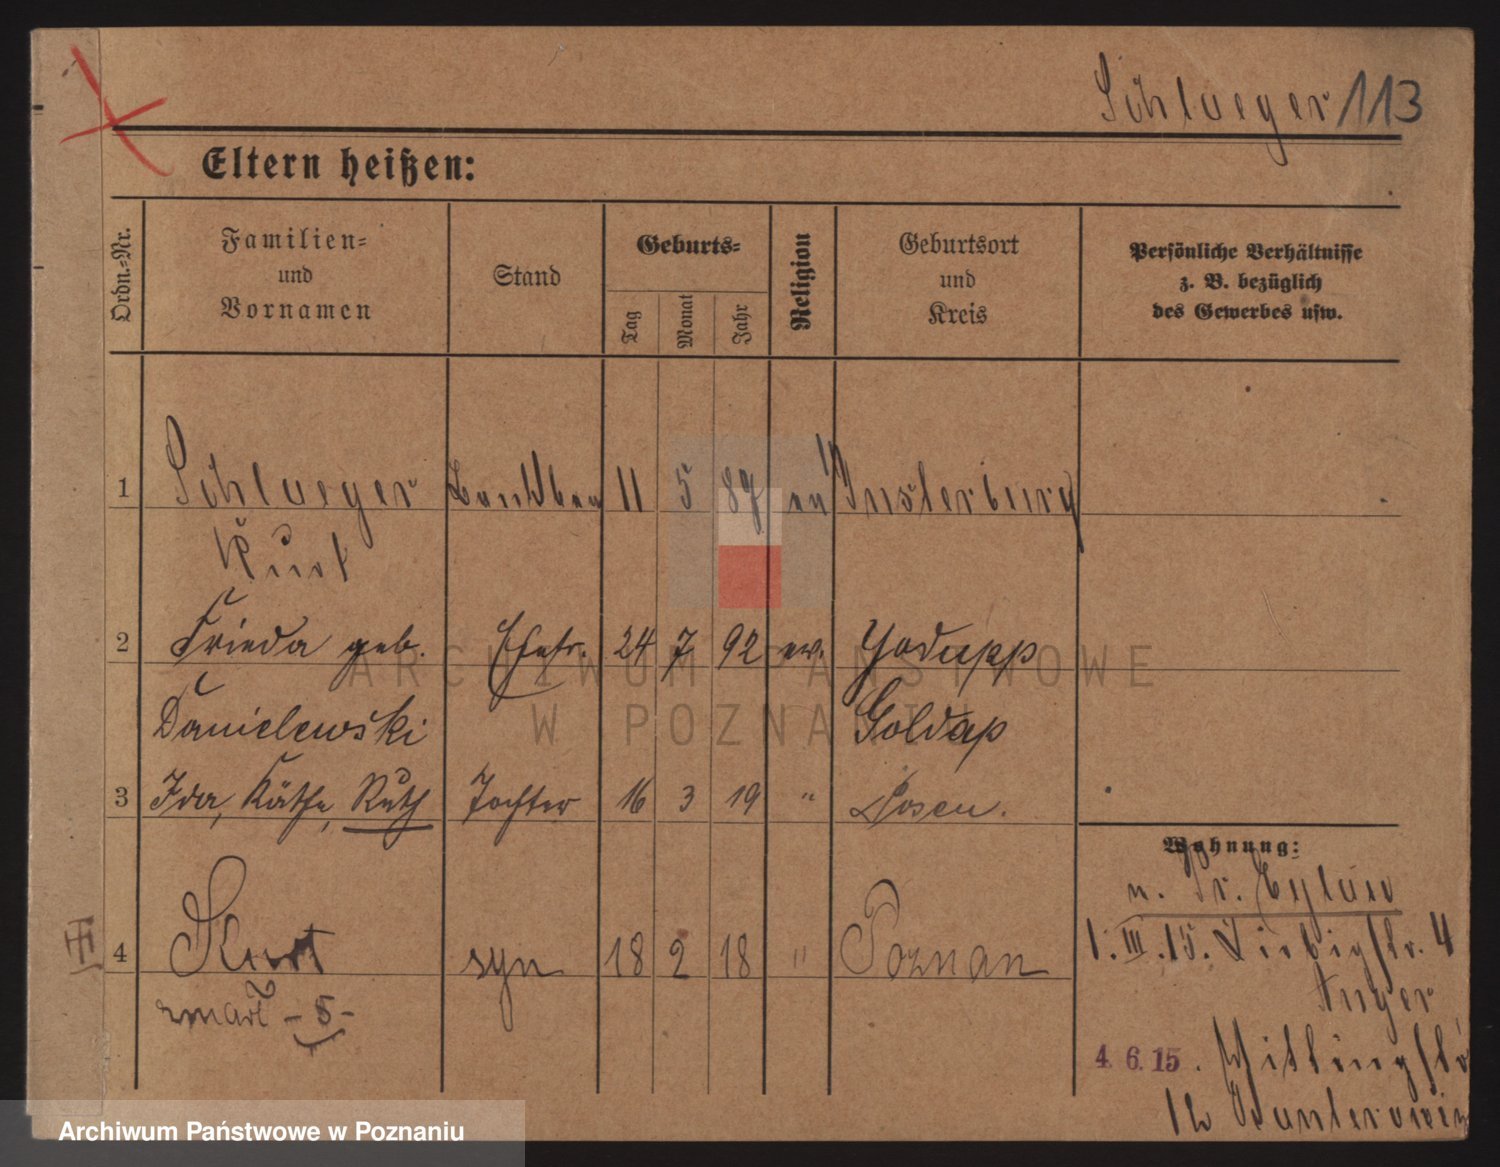 Schlueger 113
Eltern heißen:
Ordn.-Nr.
Familien-
und
Vornamen
Stand
Geburts-
Tag
Monat
Jahr
Religion
Geburtsort
und
Kreis
Persönliche Verhältnisse
z. B. bezüglich
des Gewerbes usw.
1 Schlueger 11 5 87 ev Insterburg
Kurt
2 Frieda geb. Ehefr. 24 7 92 ev. Goldap
Danielewski
3 Ida, Käthe, Ruth Tochter 16 3 19 " Posen.
Wohnung:
v. Pr. Eylau
4 Kurt syn 18 2 18 " Poznan
1. III. 15. Liebigstr. 4
zmarł - 5 -
Unger
4. 6. 15.
12
III
ARCHIWUM PAŃSTWOWE
W POZNANIU
Archiwum Państwowe w Poznaniu